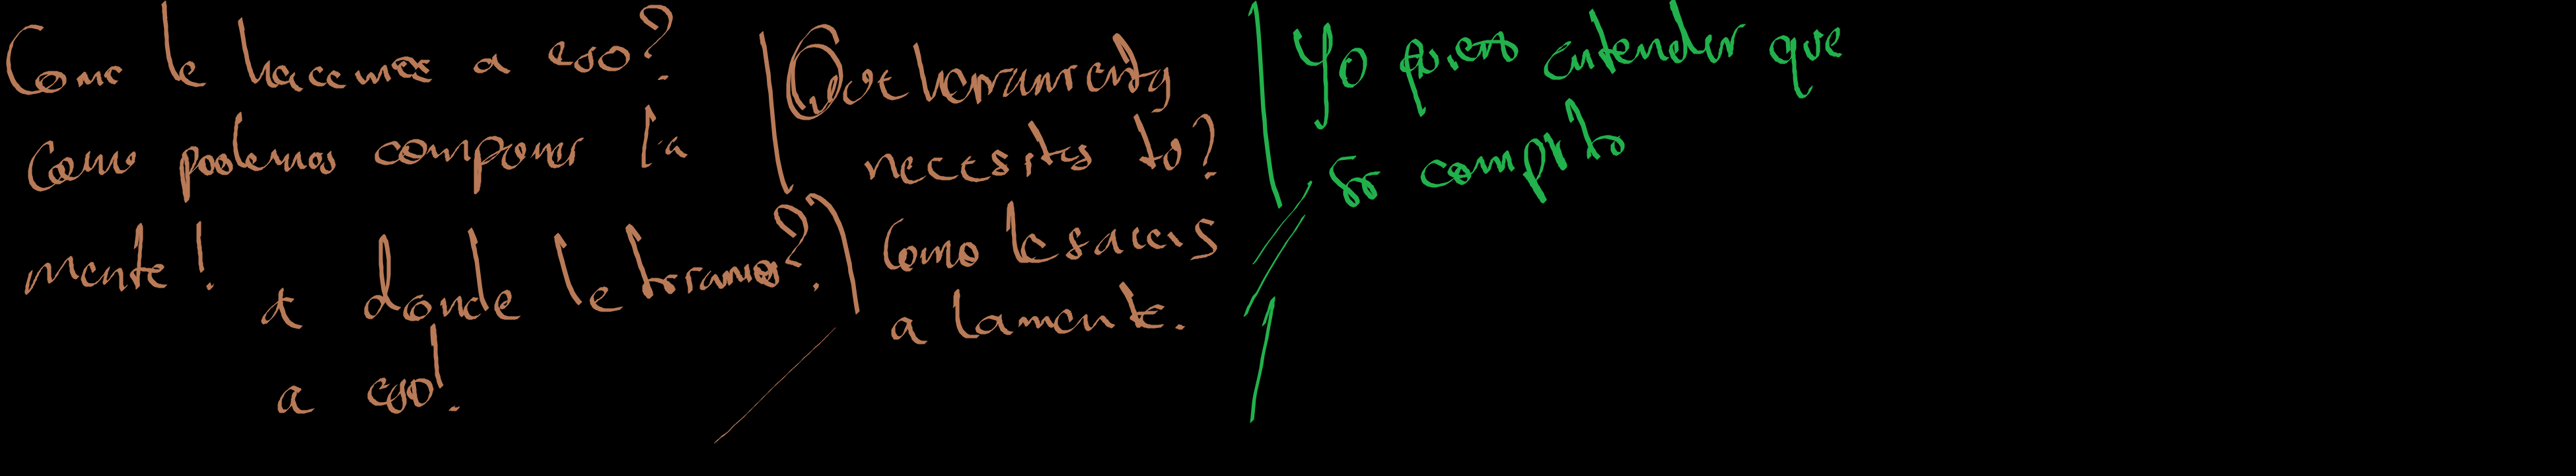 Como le hacemos a eso?
Como podemos componer la
mente!
a donde le toramos?
a eso!
Que herramienta
necesitas to?
Como le saces
a la mente.
Yo quiero entender que